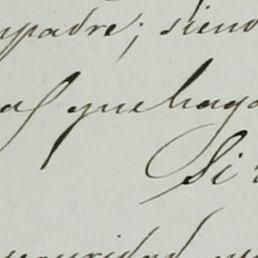 mpadre; siend
al que haga
Si
seguridad